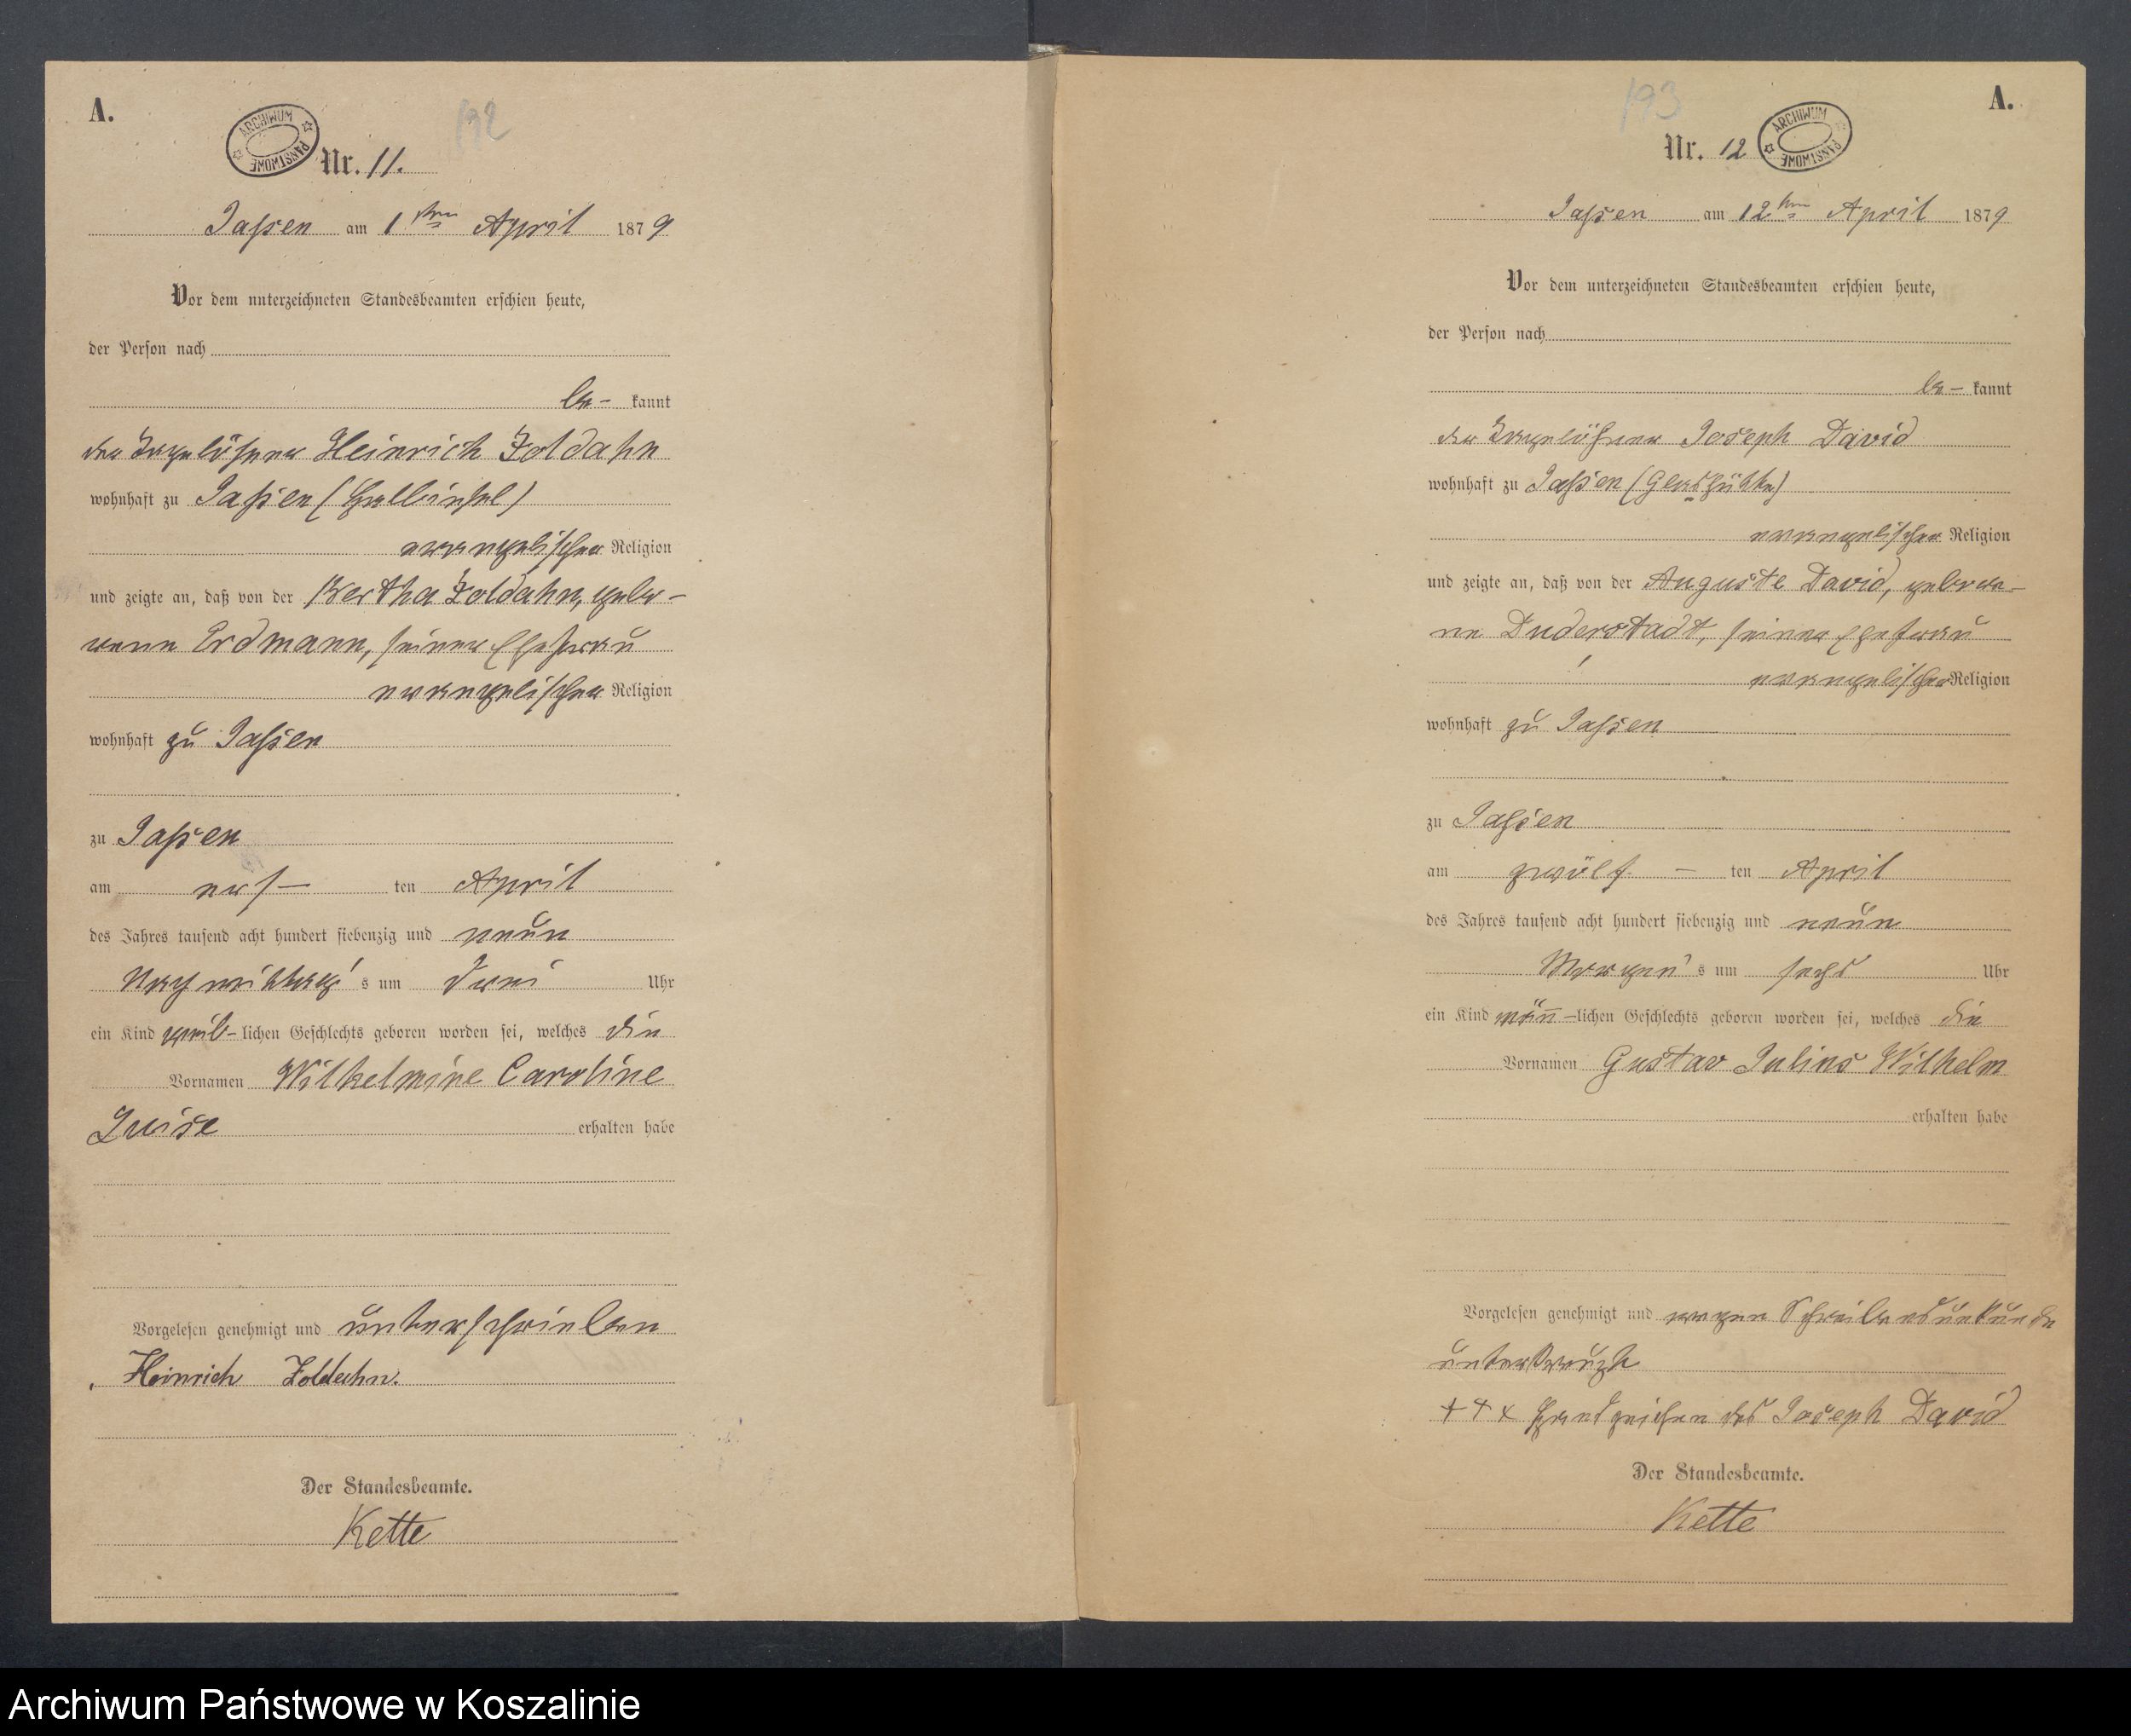 A.
ARCHIWUM PAŃSTWOWE
192
Nr. 11.
Jassen am 1ten April 1879
Vor dem unterzeichneten Standesbeamten erschien heute,
der Person nach
be- kannt
der Tagelöhner Heinrich Zoldahn
wohnhaft zu Jassen (Halbinsel)
evangelischer Religion
und zeigte an, daß von der Bertha Zoldahn, gebo-
rene Erdmann, seiner Ehefrau
evangelischer Religion
wohnhaft zu Jassen
zu Jassen
am ers- ten April
des Jahres tausend acht hundert siebenzig und neun
Nachmittag's um drei Uhr
ein Kind weib- lichen Geschlechts geboren worden sei, welches die
Vornamen Wilhelmine Caroline
Luise erhalten habe
Vorgelesen genehmigt und unterschrieben
Heinrich Zoldahn.
Der Standesbeamte.
Kette
193
A.
Nr. 12
ARCHIWUM PAŃSTWOWE
Jassen am 12ten April 1879
Vor dem unterzeichneten Standesbeamten erschien heute,
der Person nach
be- kannt
der Tagelöhner Joseph David
wohnhaft zu Jassen (Glashütte)
evangelischer Religion
und zeigte an, daß von der Auguste David, gebore-
ne Duderstadt, seiner Ehefrau
evangelischer Religion
wohnhaft zu Jassen
zu Jassen
am zwölf - ten April
des Jahres tausend acht hundert siebenzig und neun
Morgen's um sechs Uhr
ein Kind männ-lichen Geschlechts geboren worden sei, welches die
Vornamen Gustav Julius Wilhelm
erhalten habe
Vorgelesen genehmigt und wegen Schreibensunkunde
unterkreuzt
+++ Handzeichen des Joseph David
Der Standesbeamte.
Kette
Archiwum Państwowe w Koszalinie